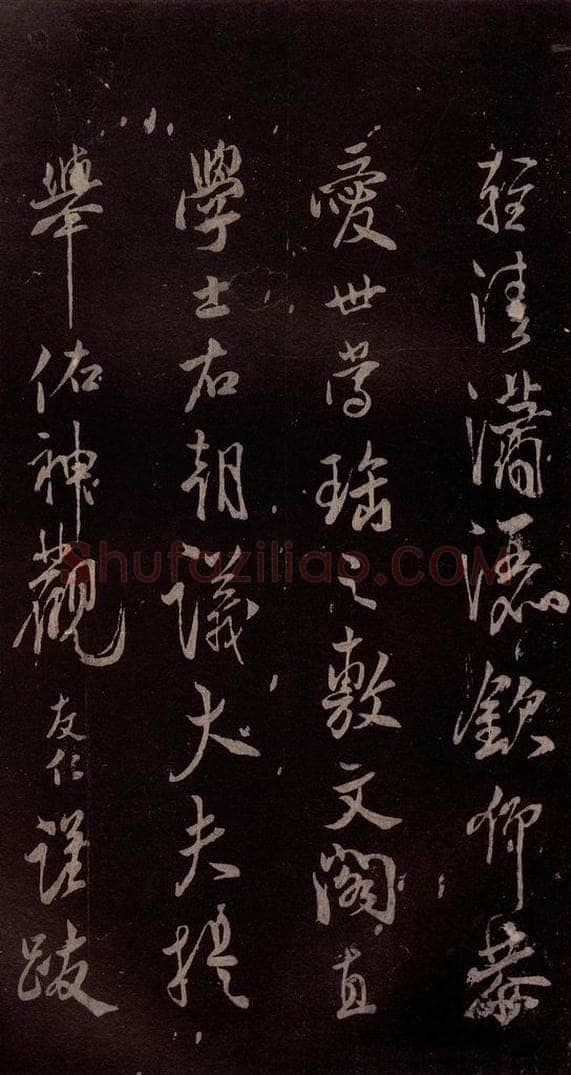 輕清瀟灑欽仰恭
愛世當珤之敷文閣直
學士右朝議大夫提
舉佑神觀友仁謹跋
Shufaziliao.com